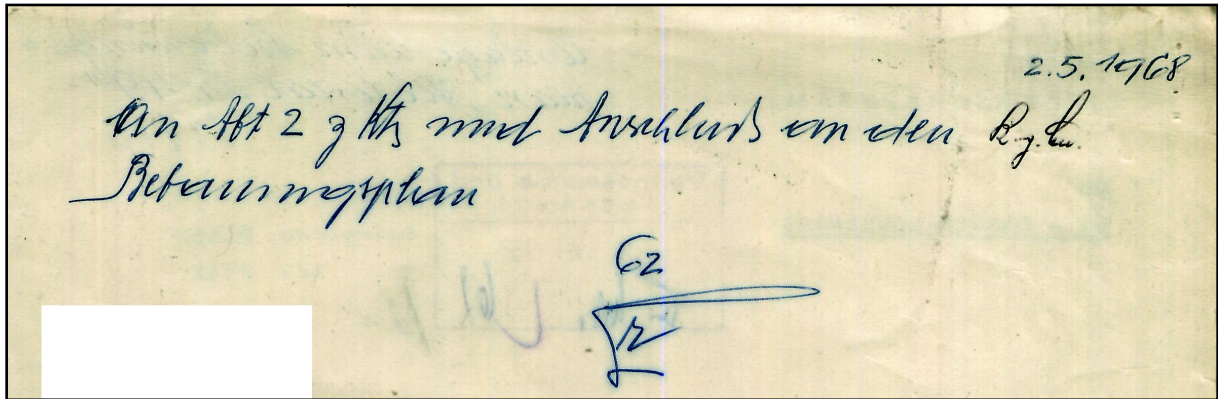 2.5.1968
An Abt 2 z Ktn und Anschluß an den
Bebauungsplan
62